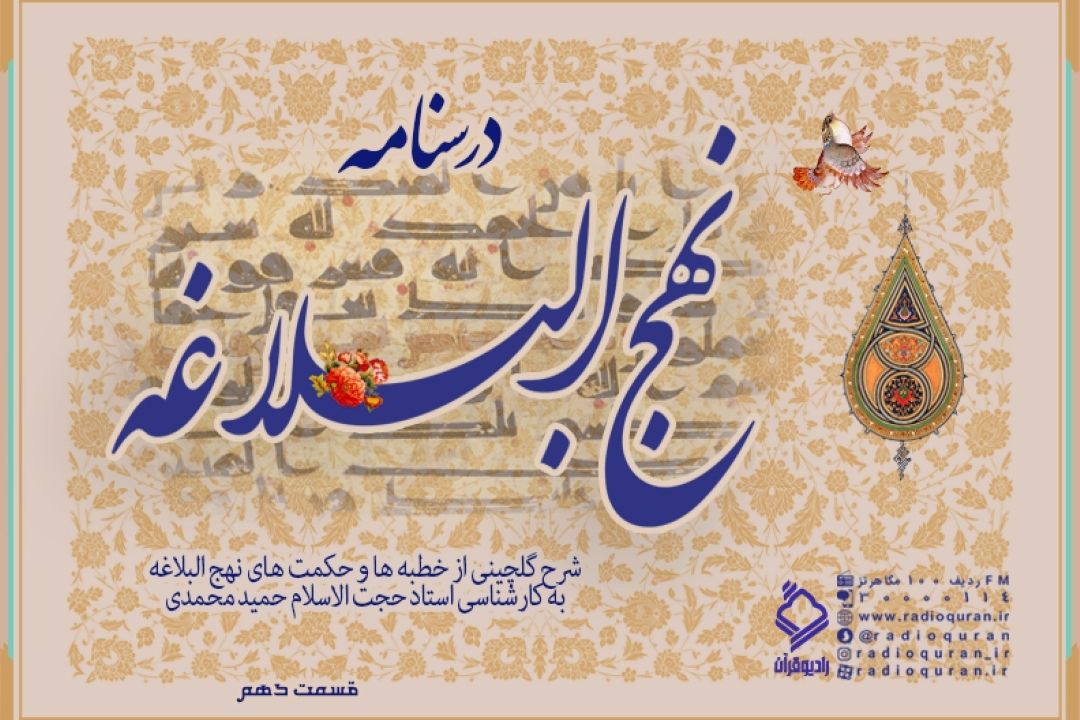 درسنامه
نهج البلاغه
شرح گلچینی از خطبه ها و حکمت های نهج البلاغه
به کارشناسی استاد حجت الاسلام حمید محمدی
قسمت دهم
رادیو قرآن
FM ردیف ۱۰۰ مگاهرتز
۳۰۰۰۰۱۱۴
www.radioquran.ir
@radioquran
radioquran_ir
radioquran.ir